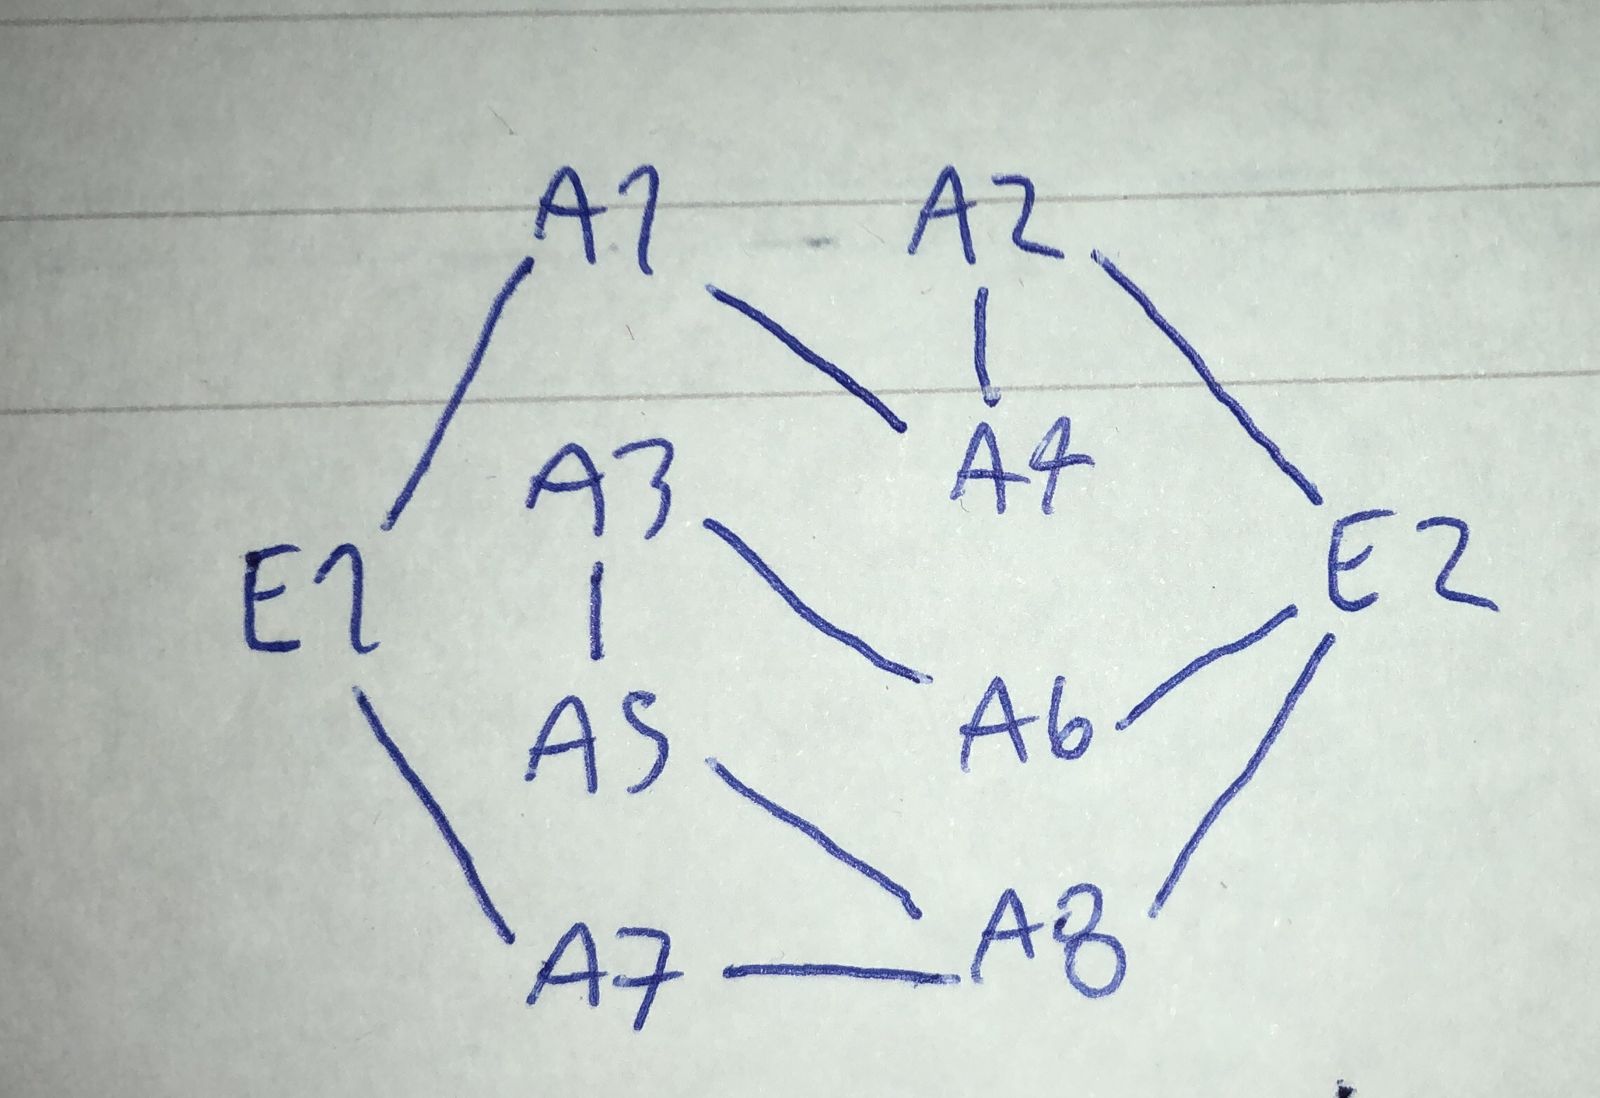 A1 A2
A3 A4
E1 E2
A5 A6
A7 A8